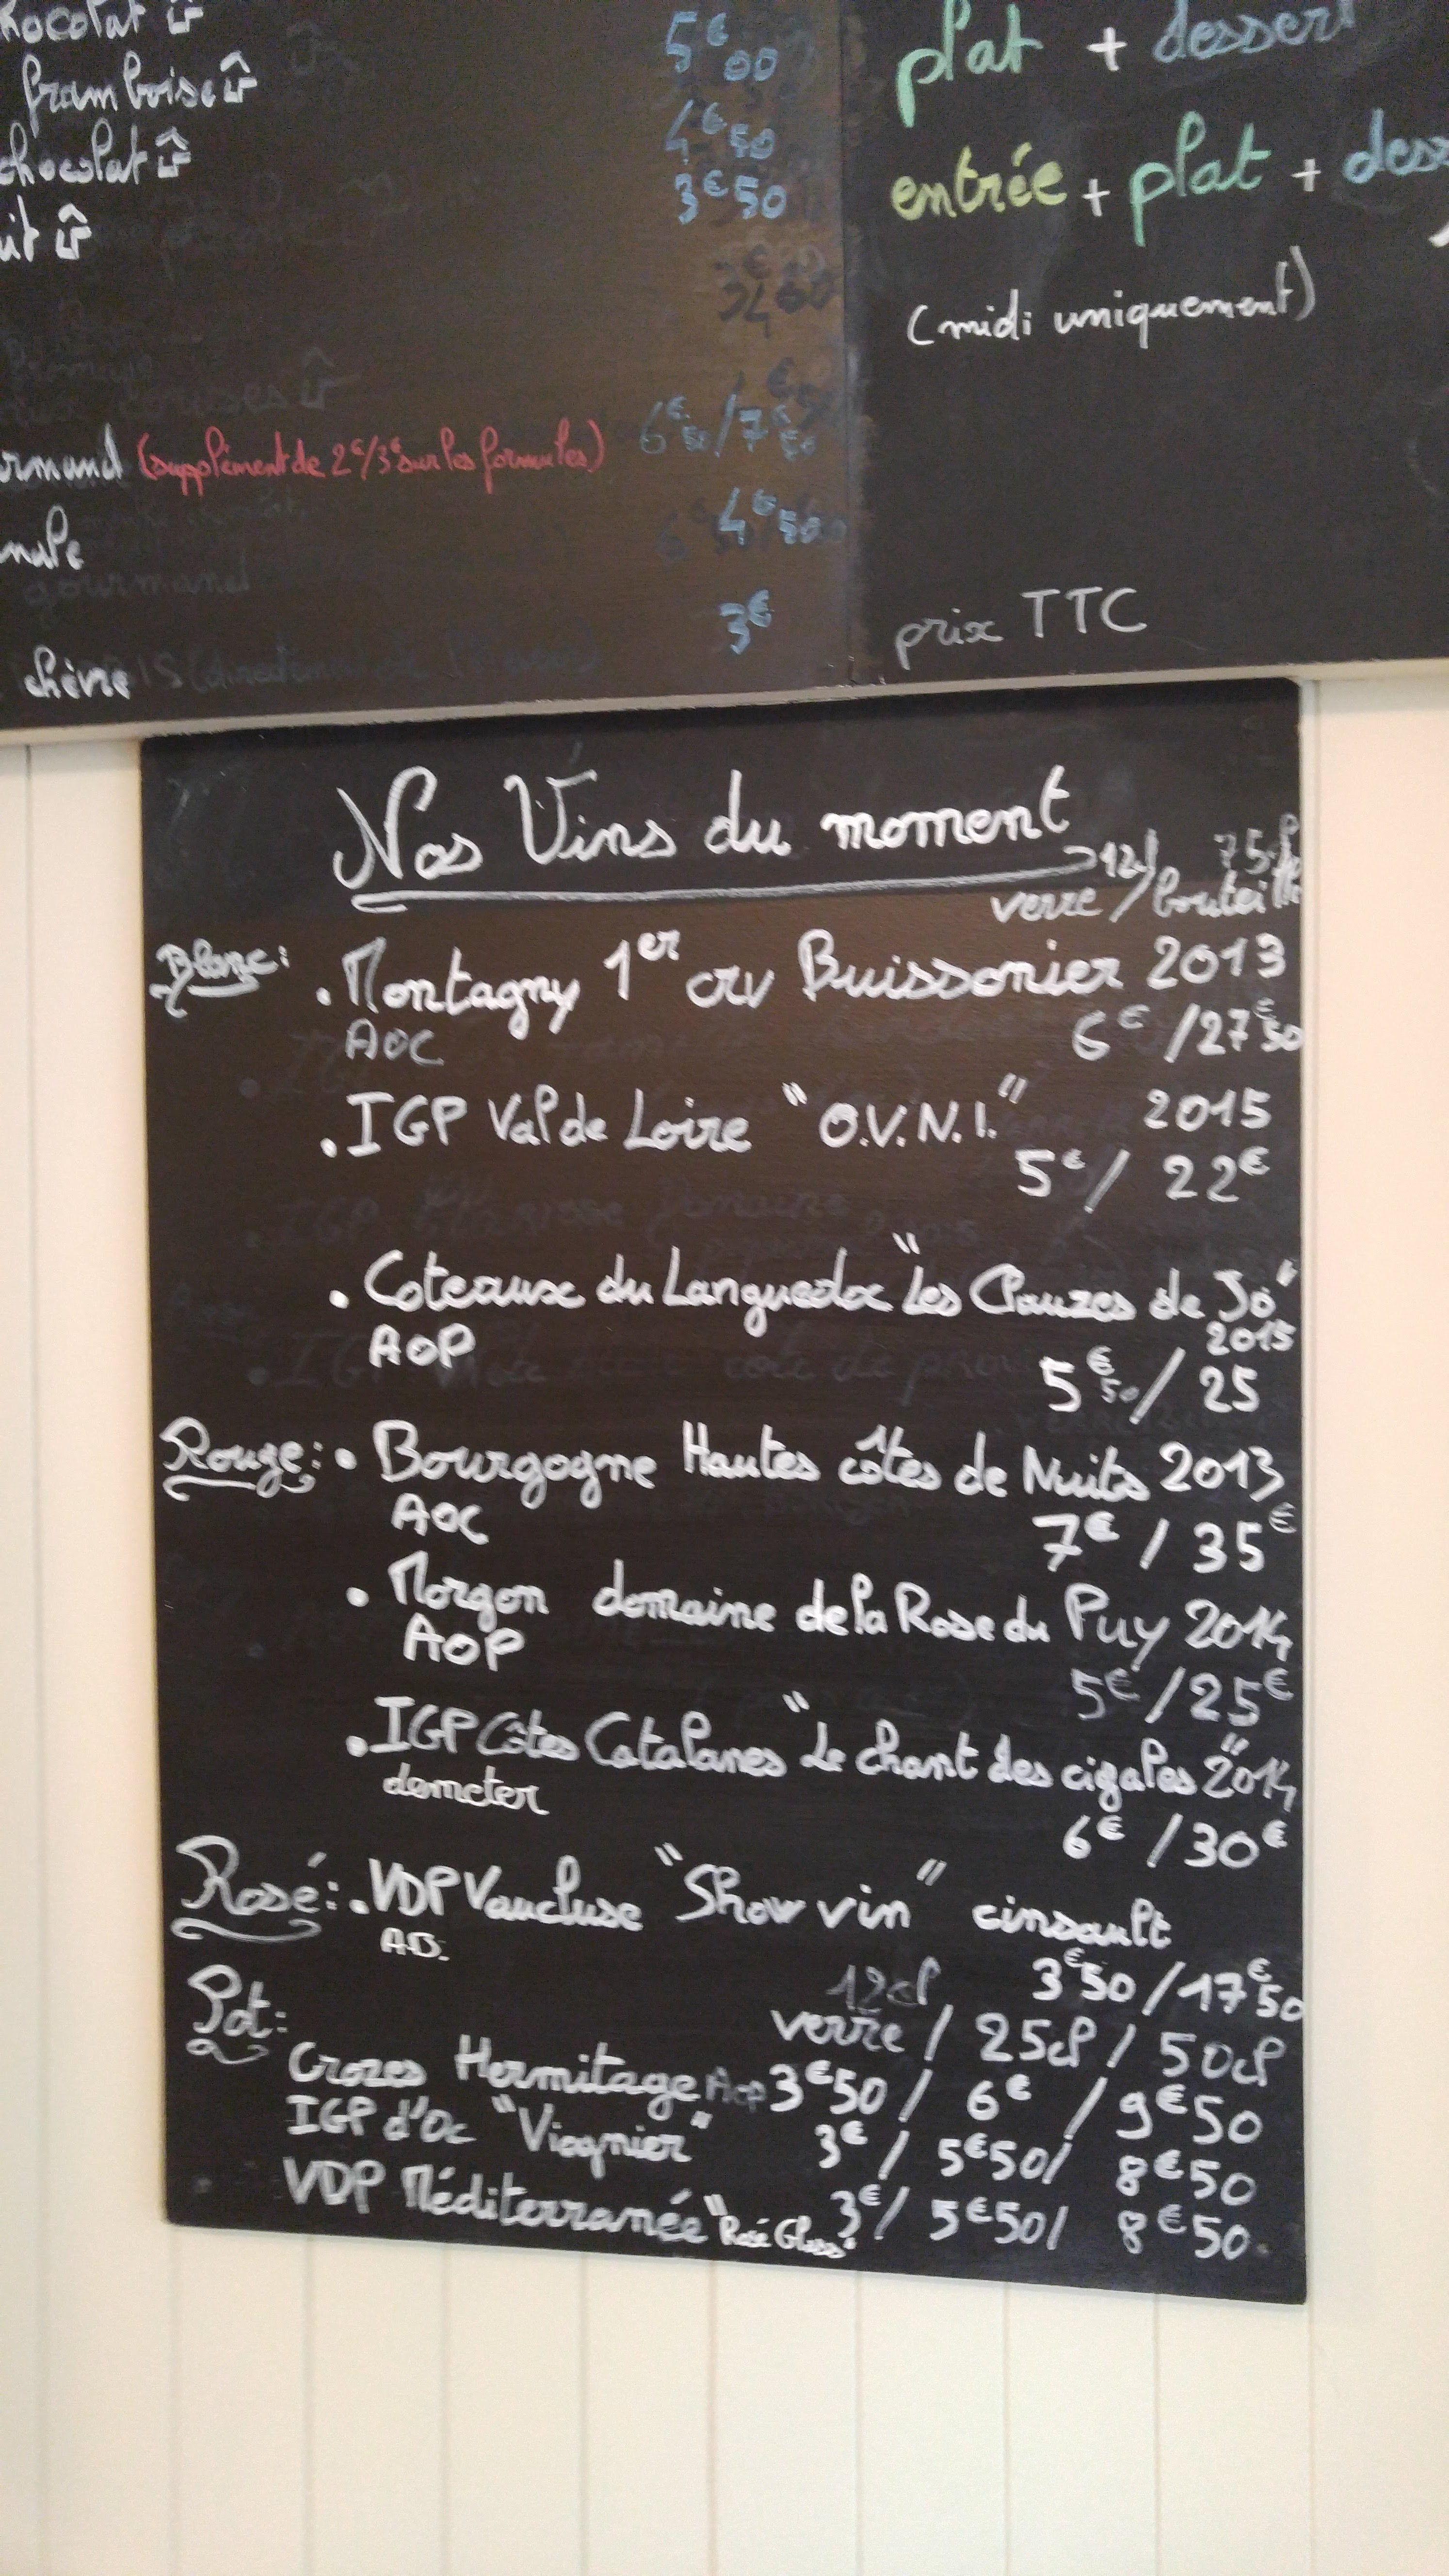 hocolat
framboise
chocolat
it
5€00
4€50
3€50
rmand (supplément de 2€/3€ sur les formules) 6€50/7€50
nale 4€50
3€
chèvre
plat + dessert
entrée + plat + dess
(midi uniquement)
prix TTC
Nos Vins du moment
12cl 75cl
verre / bouteille
Blanc: . Montagny 1er cru Buissonier 2013
AOC 6€ /27€50
. IGP Val de Loire "O.V.N.I." 2015
5€/ 22€
. Coteaux du Languedoc "Les Clauzes de Jo"
AOP 2015
5€50/ 25
Rouge: . Bourgogne Hautes côtes de Nuits 2013
AOC 7€ / 35€
. Morgon domaine de la Rose du Puy 2014
AOP 5€ /25€
. IGP Côtes Catalanes "Le chant des cigales" 2014
demeter 6€ /30€
Rosé: . VDP Vaucluse "Show vin" cinsault
AB. 3€50 /17€50
Pot: 12cl
verre / 25cl / 50cl
Crozes Hermitage AOP 3€50 / 6€ / 9€50
IGP d'Oc "Viognier" 3€ / 5€50/ 8€50
VDP Méditerranée "Rosé Gloss" 3€/ 5€50/ 8€50